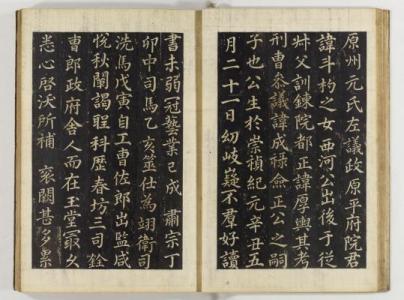 原州元氏左議政原平府院君
諱斗杓之女西河公出後于從
叔父訓鍊院都正諱厚輿其考
刑曹參議諱成祿僉正公之嗣
子也公生於崇禎紀元辛丑五
月二十一日幼岐嶷不羣好讀
書未弱冠藝業已成 肅宗丁
卯中司馬乙亥筮仕為翊衛司
洗馬戊寅自工曹佐郎出監咸
悅秋闡謁聖科歷春坊三司銓
曹郎政府舍人而在玉堂最久
悉心啓沃所補 袞闕甚多累